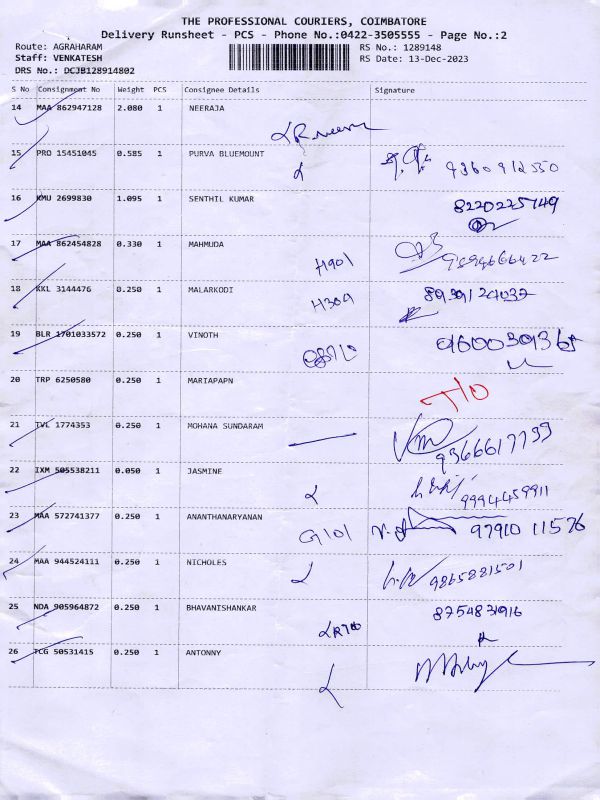 THE PROFESSIONAL COURIERS, COIMBATORE
Delivery Runsheet - PCS - Phone No.:0422-3505555 - Page No.:2
Route: AGRAHARAM RS No.: 1289148
Staff: VENKATESH RS Date: 13-Dec-2023
DRS No.: DCJB128914802
S No Consignment No Weight PCS Consignee Details Signature
14 MAA 862947128 2.080 1 NEERAJA
15 PRO 15451045 0.585 1 PURVA BLUEMOUNT
9360912550
16 KMU 2699830 1.095 1 SENTHIL KUMAR 8220225749
17 MAA 862454828 0.330 1 MAHMUDA
H901 9894666422
18 KKL 3144476 0.250 1 MALARKODI 8939124037
H304
19 BLR 1701033572 0.250 1 VINOTH
20 TRP 6250580 0.250 1 MARIAPAPN
T/O
21 TVL 1774353 0.250 1 MOHANA SUNDARAM
9366617799
22 IXM 505538211 0.050 1 JASMINE
9994459911
23 MAA 572741377 0.250 1 ANANTHANARYANAN
G101 97910 11576
24 MAA 944524111 0.250 1 NICHOLES
9865881501
25 NDA 905964872 0.250 1 BHAVANISHANKAR 8754831916
26 TCG 50531415 0.250 1 ANTONNY